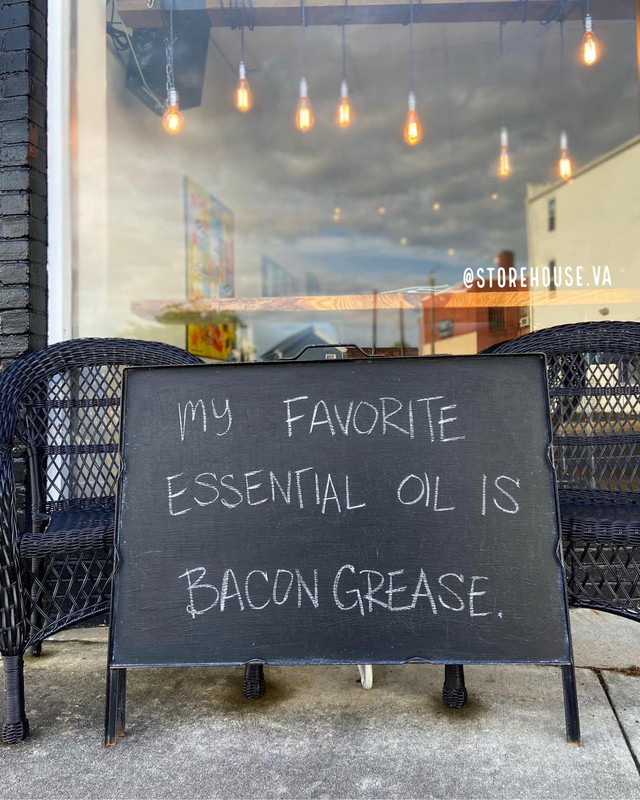 @STOREHOUSE.VA
MY FAVORITE
ESSENTIAL OIL IS
BACON GREASE.